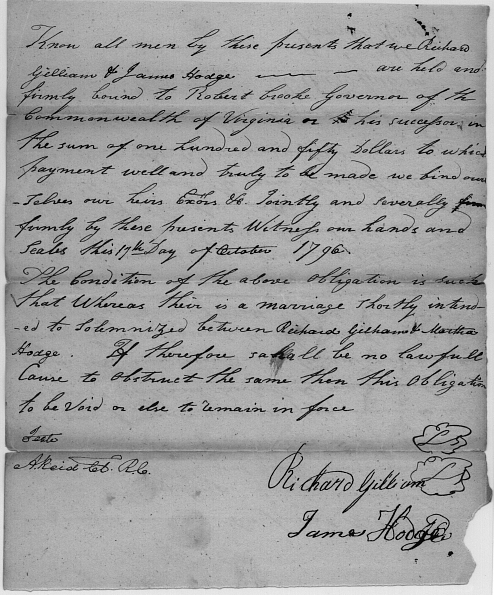 Know all men by these presents that we Richard
Gilliam & James Hodge — — — are held and
firmly bound to Robert Brooke Governor of the
Commonwealth of Virginia or his successor in
the sum of one hundred and fifty Dollars to which
payment well and truly to be made we bind our
-selves our heirs Exõrs &c. Jointly and severally
firmly by these presents Witness our hands and
Seales this 17th Day of October 1796.
The Condition of the above obligation is such
that Whereas their is a marriage shortly intend-
-ed to Solemnized between Richard Gilliam & Martha
Hodge. If therefore sahall be no lawfull
Cause to obstruct the same then this obligation
to be Void or else to remain in force
Teste
A. Reid Ct. R.C.
LS
Richard Gilliam LS
James Hodge